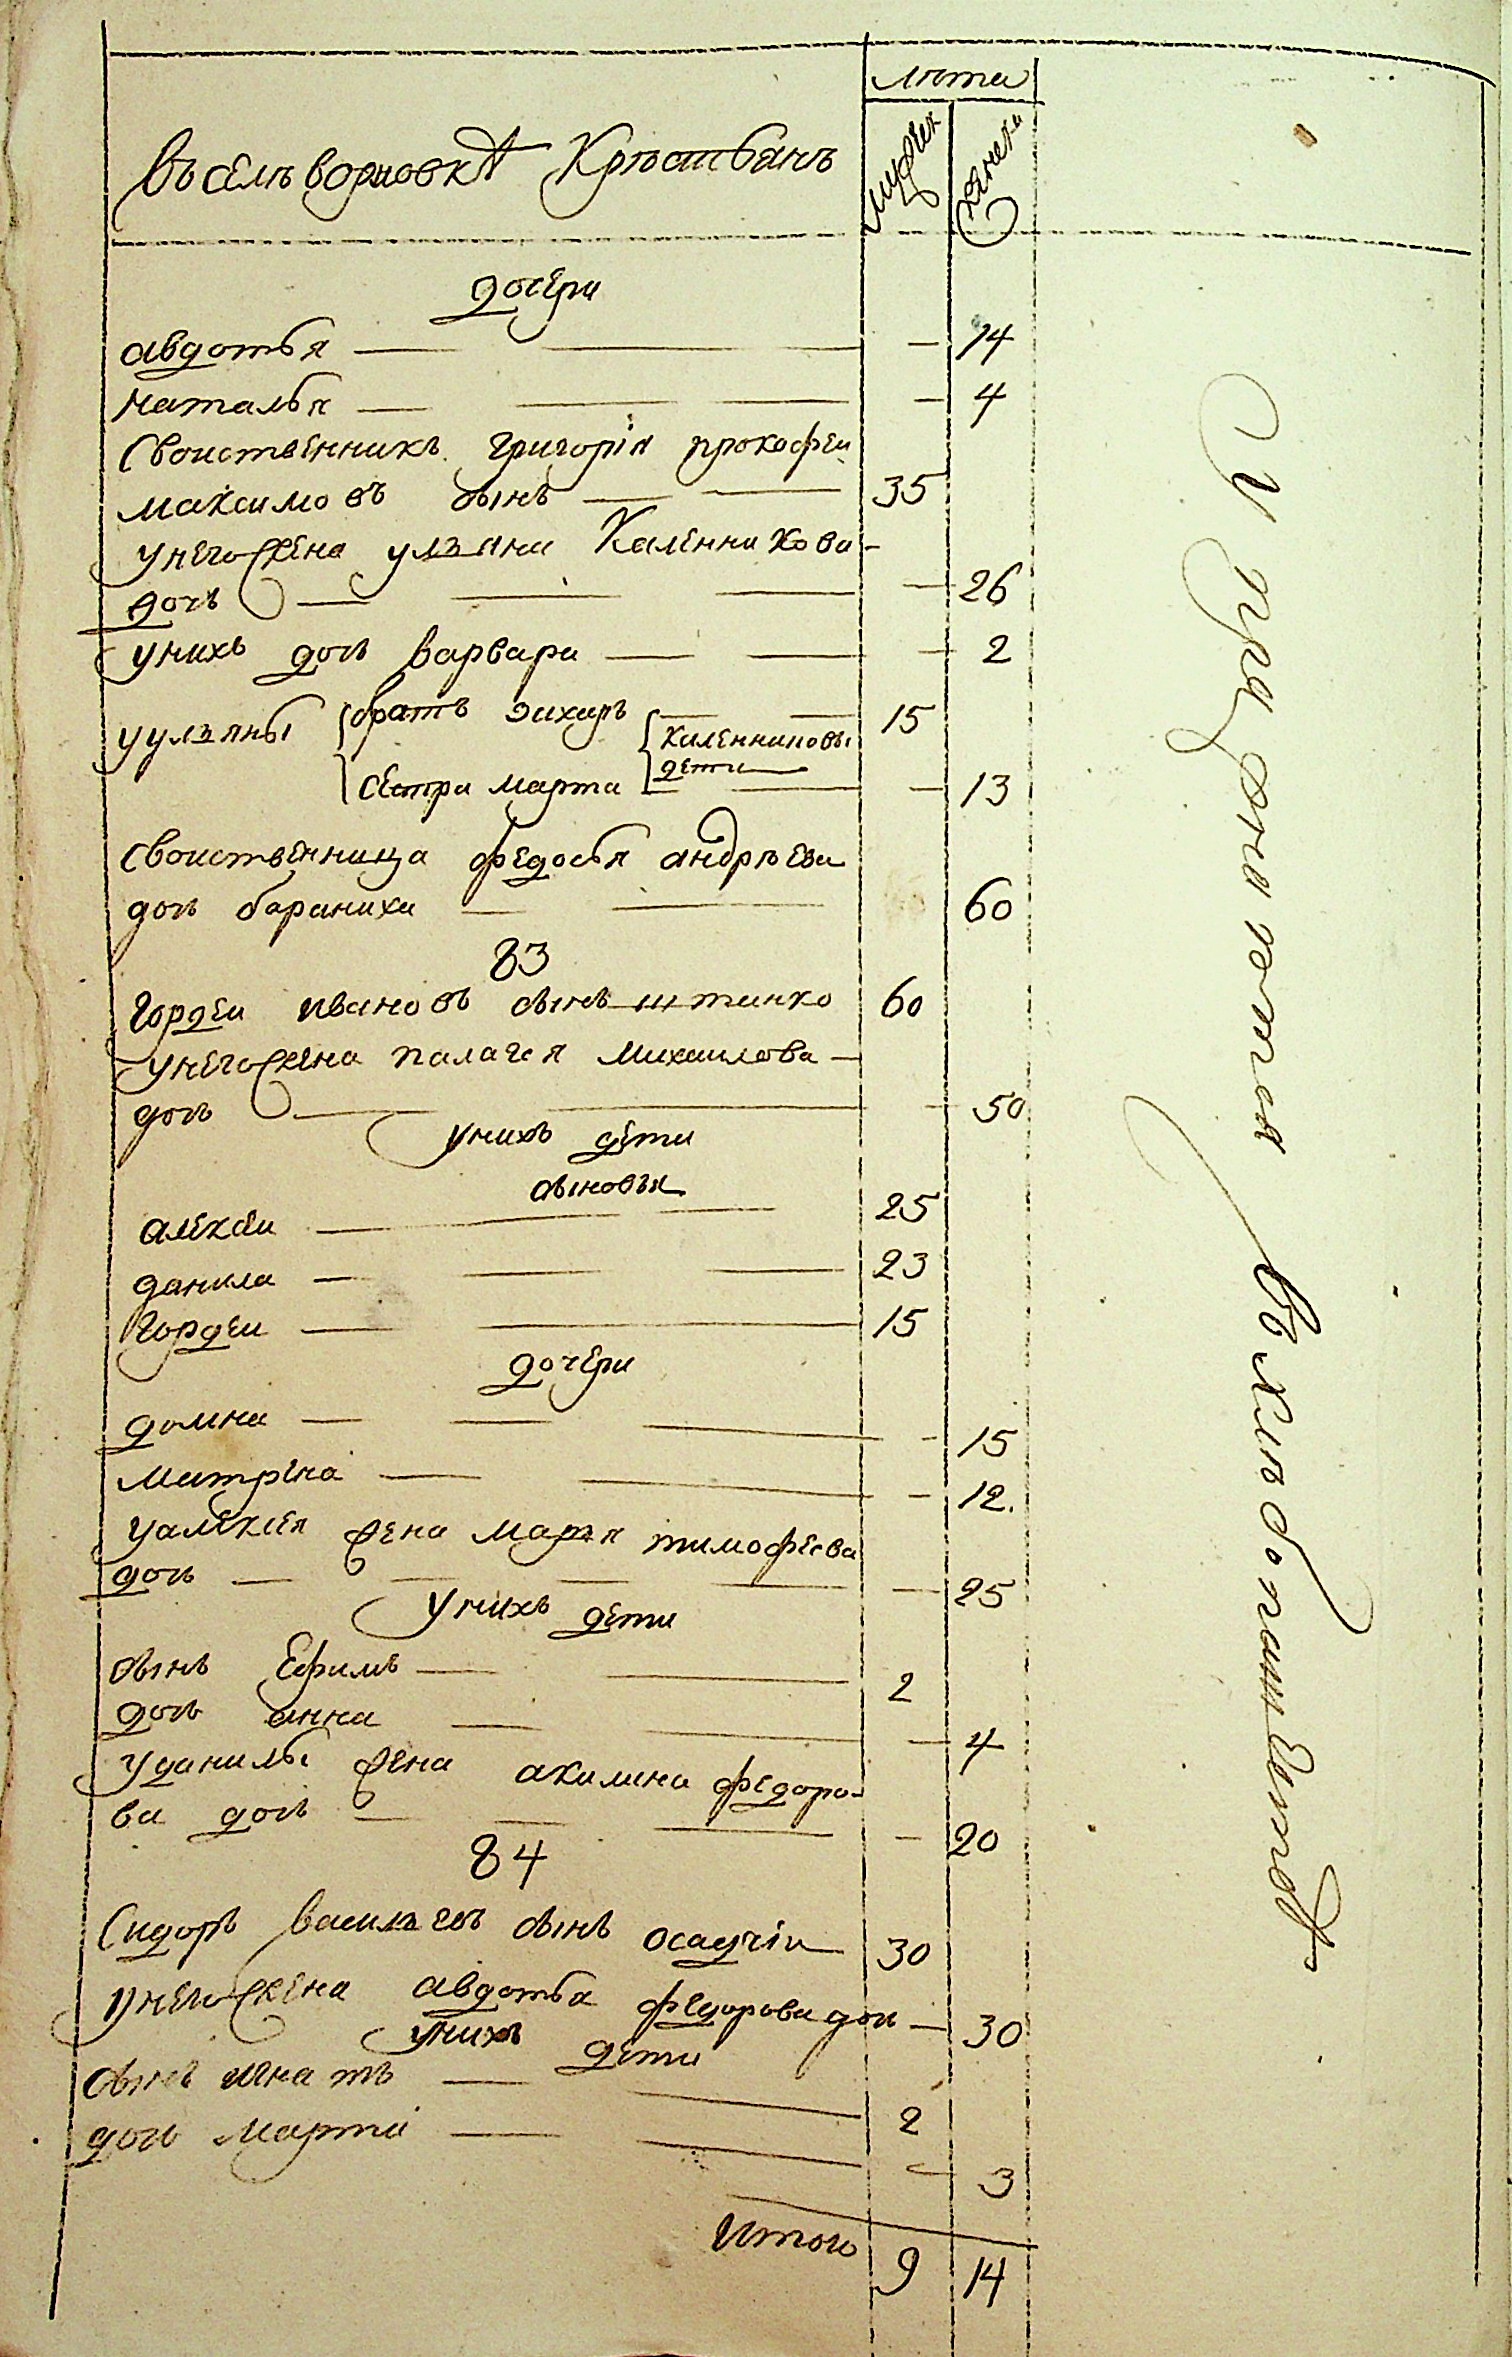 лѣта
въ селѣ ворновкѣ Крѣстьянъ
мужеск
женска
дочери
авдотья — — 14
наталья — — 4
Своиственникъ григорія прокофеи
максимовъ сынъ — 35
унего жена улъяна Каленникова
дочь — — 26
унихъ дочь варвара — — 2
уулъяны братъ захаръ — 15
каленниковы дети
сестра марта — 13
своиственница федосья андрѣева
дочь бараниха — 60
83
Гордеи ивановъ сынъ штанко 60
унего жена палагея михаилова
дочь — — 50
унихъ дети
сыновья
алексеи — 25
данила — 23
Гордеи — 15
дочери
домна — — 15
матрена — — 12.
уалексея жена маръя тимофеева
дочь — — 25
унихъ дети
сынъ Ефимъ — 2
дочь анна — — 4
уданилы жена акилина федоро-
ва дочь — — 20
84
Сидоръ василъевъ сынъ осадчіи 30
унего жена авдотья федорова дочь — 30
унихъ дети
сынъ игнатъ — 2
дочь марта — — 3
Итого 9 14
и пра
в хлѣбопашествѣ